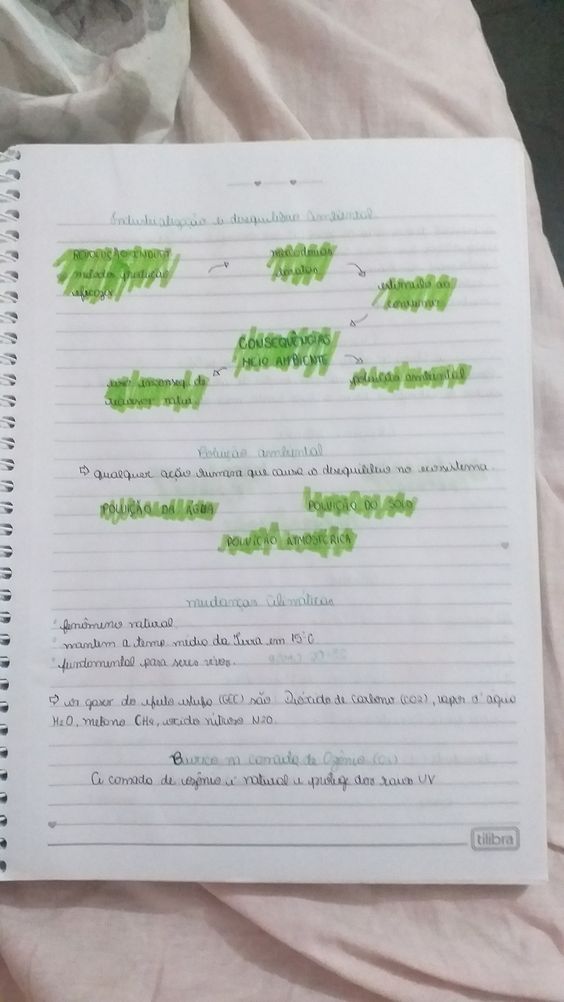 Industrialização e desequilíbrio ambiental
REVOLUÇÃO INDUST
métodos produção
eficazes
estimulo ao
consumo
CONSEQUÊNCIAS
MEIO AMBIENTE
uso inconseq. de
recursos natui
poluição ambiental
Poluição ambiental
⇨ qualquer ação humana que cause o desequilíbrio no ecossistema.
POLUIÇÃO DA ÁGUA
POLUIÇÃO DO SOLO
POLUIÇÃO ATMOSFÉRICA
mudanças climáticas
fenômeno natural.
mantem a temp médio da Terra em 15°C
fundamental para seres vivos.
⇨ os gases do efeito estufa (GEE) são: Dióxido de carbono (CO2), vapor d'água
H2O, metano CH4, oxido nitroso N2O.
Buraco na camada de Ozônio
A camada de ozônio é natural e protege dos raios UV
tilibra